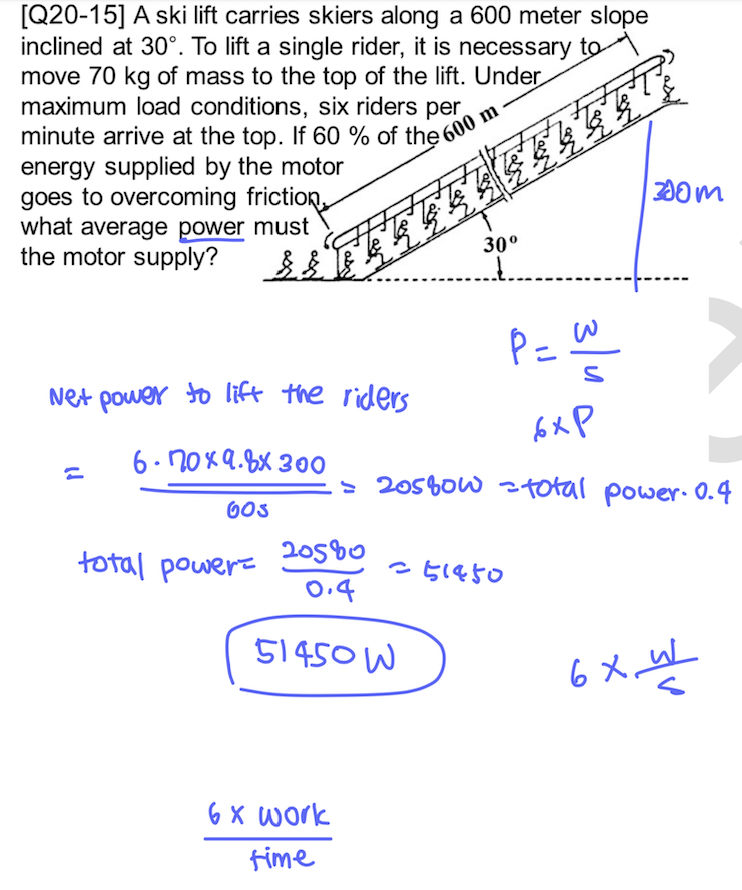 [Q20-15] A ski lift carries skiers along a 600 meter slope
inclined at 30°. To lift a single rider, it is necessary to
move 70 kg of mass to the top of the lift. Under
maximum load conditions, six riders per
minute arrive at the top. If 60 % of the
energy supplied by the motor
goes to overcoming friction,
what average power must
the motor supply?
600 m
30°
300m
P = W
S
6×P
Net power to lift the riders
= 6·70×9.8×300
60s
= 20580W = total power·0.4
total power = 20580
0.4
= 51450
51450 W
6 × W
S
6 × work
time